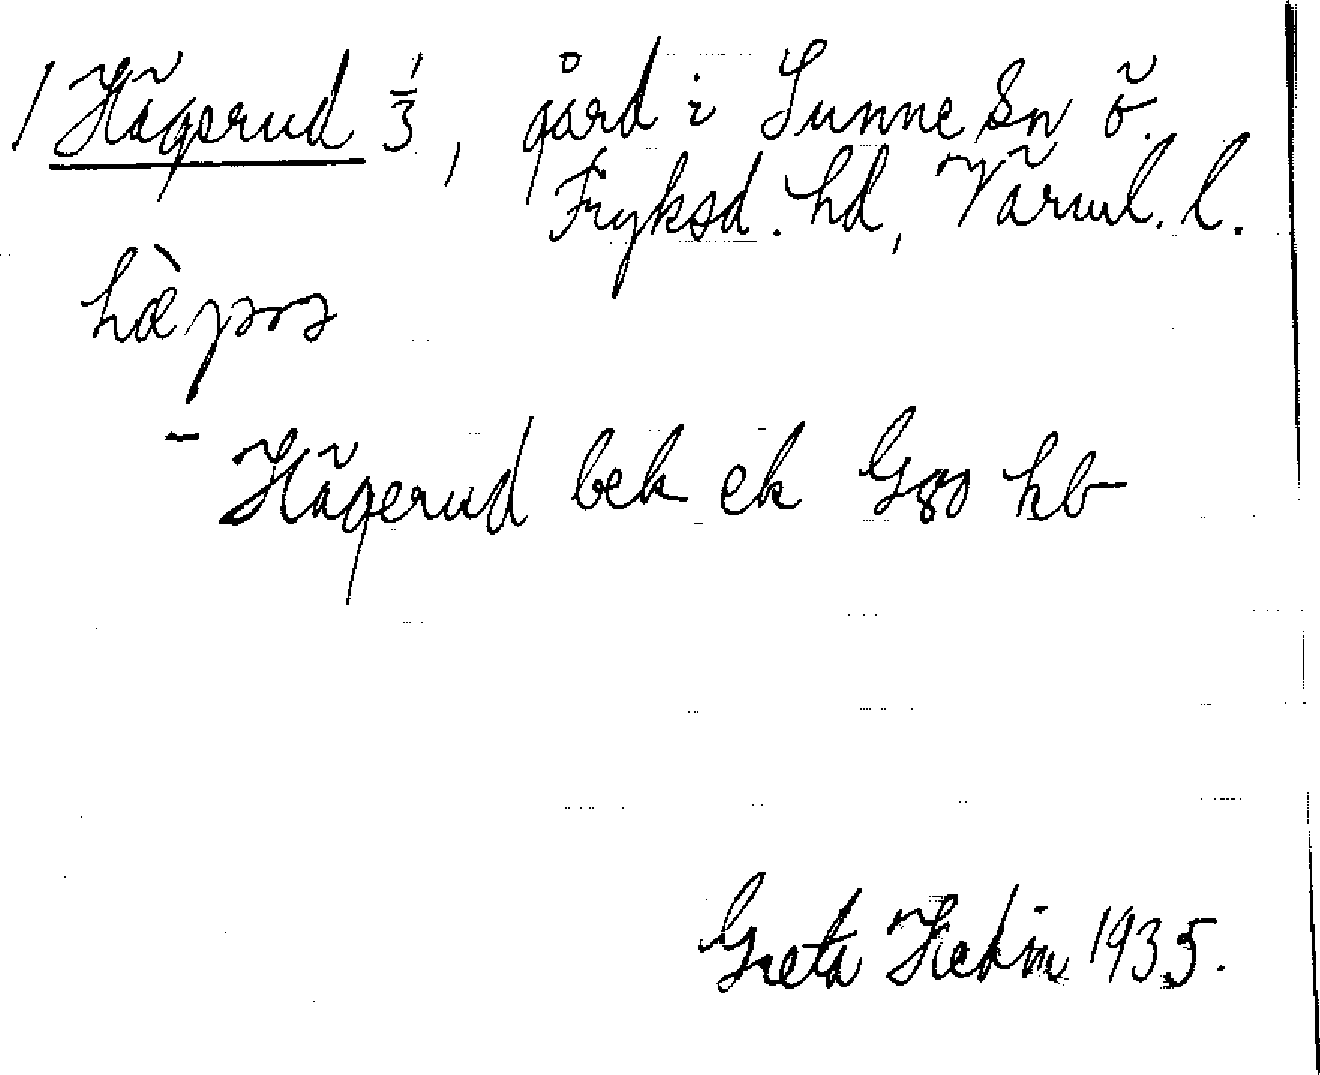 / Hägerud 1/3, gård i Sunne sn ö.
Fryksd. hd, Värml. l.
- Hägerud bek ek G80 hb
Greta Hedin 1935.